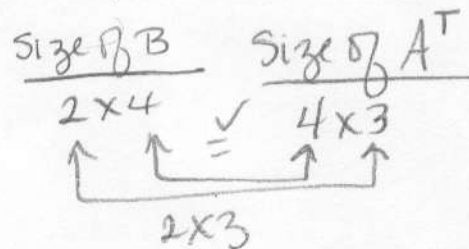 Size of B Size of Aᵀ
2×4 = ✓ 4×3
2×3